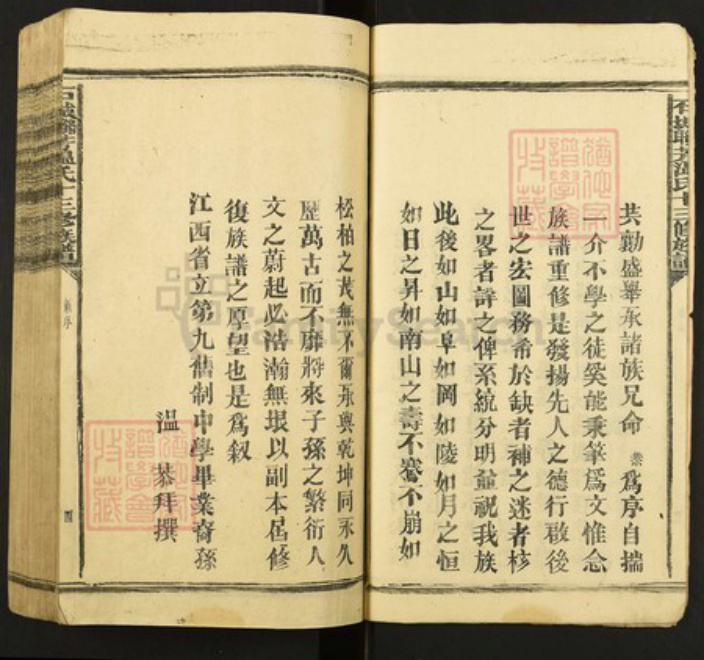 共勷盛舉承諸族兄命棻為序自揣
一介不學之徒奚能秉筆爲文惟念
族譜重修是發揚先人之德行啟後
世之宏圖務希於缺者補之迷者核
之畧者詳之俾系統分明並祝我族
此後如山如阜如岡如陵如月之恒
如日之昇如南山之壽不騫不崩如
松柏之茂無不爾承與乾坤同永久
歷萬古而不靡將來子孫之繁衍人
文之蔚起必浩瀚無垠以副本屆修
復族譜之厚望也是爲叙
江西省立第九舊制中學畢業裔孫
温棻拜撰
四
FamilySearch